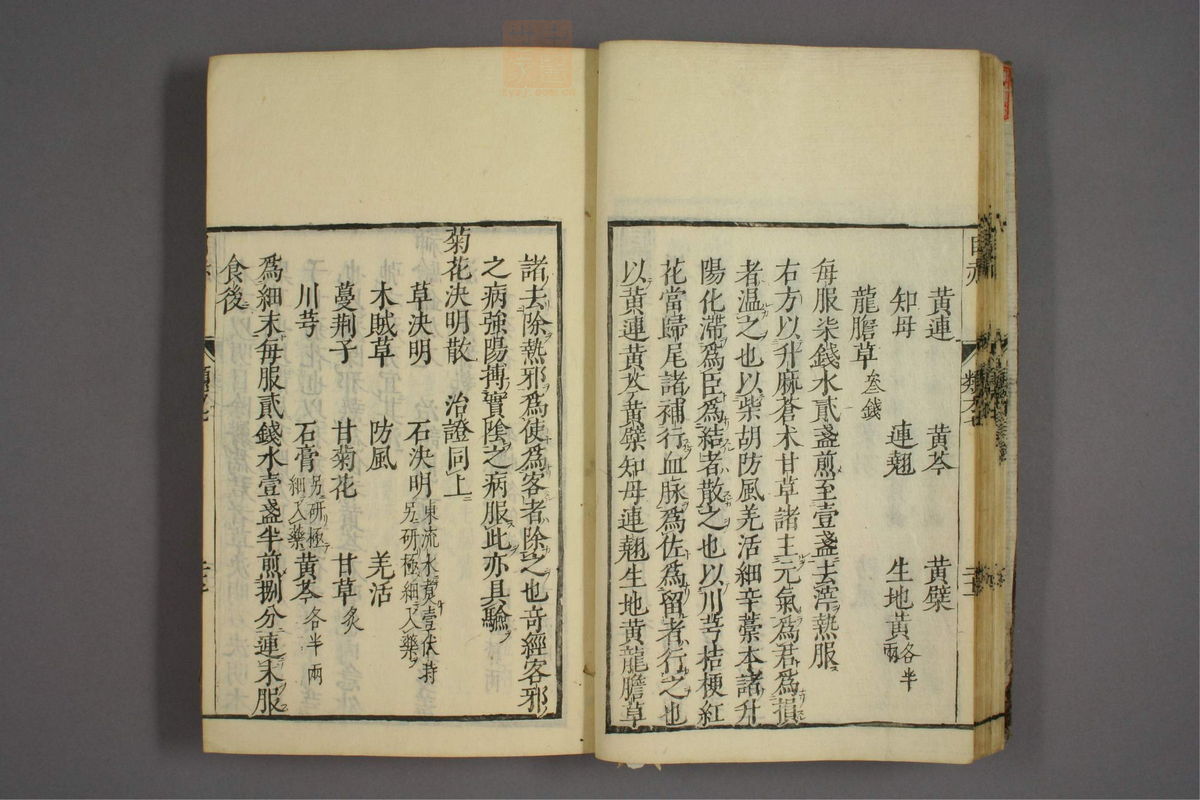 黃連 黃芩 黃檗
知母 連翹 生地黃各半兩
龍膽草叄錢
每服柒錢水貳盞煎至壹盞去滓熱服
右方以升麻蒼术甘草諸主元氣爲君爲損
者温之也以柴胡防風羌活細辛藁本諸升
陽化滯爲臣爲結者散之也以川芎桔梗紅
花當歸尾諸補行血脉爲佐爲留者行之也
以黃連黃芩黃檗知母連翹生地黃龍膽草
諸去除熱邪爲使爲客者除之也奇經客邪
之病強陽搏實陰之病服此亦具驗
菊花決明散 治證同上
草決明 石決明東流水煑壹伏時另研極細入藥
木賊草 防風 羌活
蔓荆子 甘菊花 甘草炙
川芎 石膏另研極細入藥 黃芩各半兩
爲細末每服貳錢水壹盞半煎捌分連末服
食後